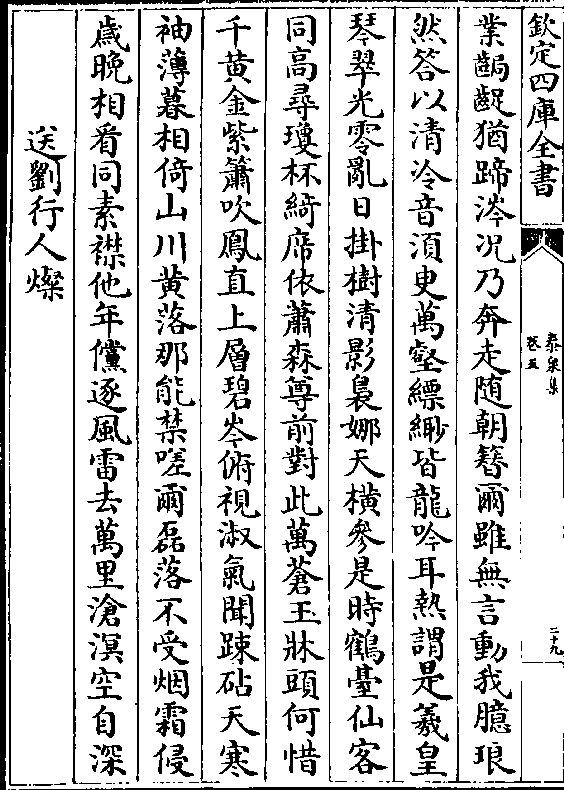 欽定四庫全書
泰泉集
卷五
二十九
業齷齪猶蹄涔况乃奔走随朝簮爾雖無言動我臆琅
然答以清泠音湏臾萬壑縹緲皆龍吟耳熱謂是羲皇
琴翠光零亂日掛樹清影裊娜天橫參是時鶴臺仙客
同高尋瓊杯綺席依蕭森尊前對此萬蒼玉牀頭何惜
千黄金紫簫吹鳳直上層碧岑俯視淑氣聞踈砧天寒
袖薄暮相倚山川黄落那能禁嗟爾磊落不受烟霜侵
歳晚相看同素襟他年儻逐風雷去萬里滄溟空自深
送劉行人燦